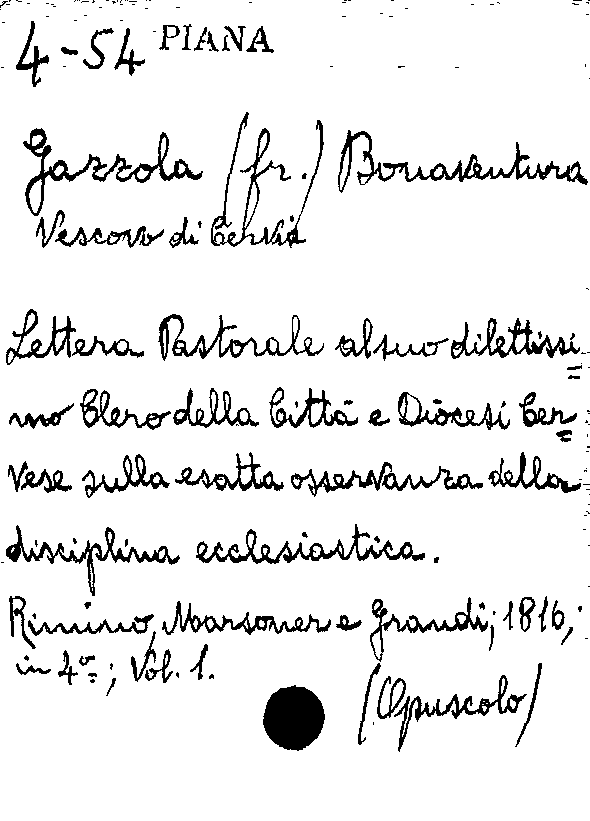 4-54 PIANA
Gazzola (fr.) Bonaventura
Vescovo di Cervia
Lettera Pastorale al suo dilettissi=
mo Clero della Città e Diocesi Cer=
vese sulla esatta osservanza della
disciplina ecclesiastica.
Rimino, Marsoner e Grandi; 1816,
in 4º; Vol. 1.
(Opuscolo)